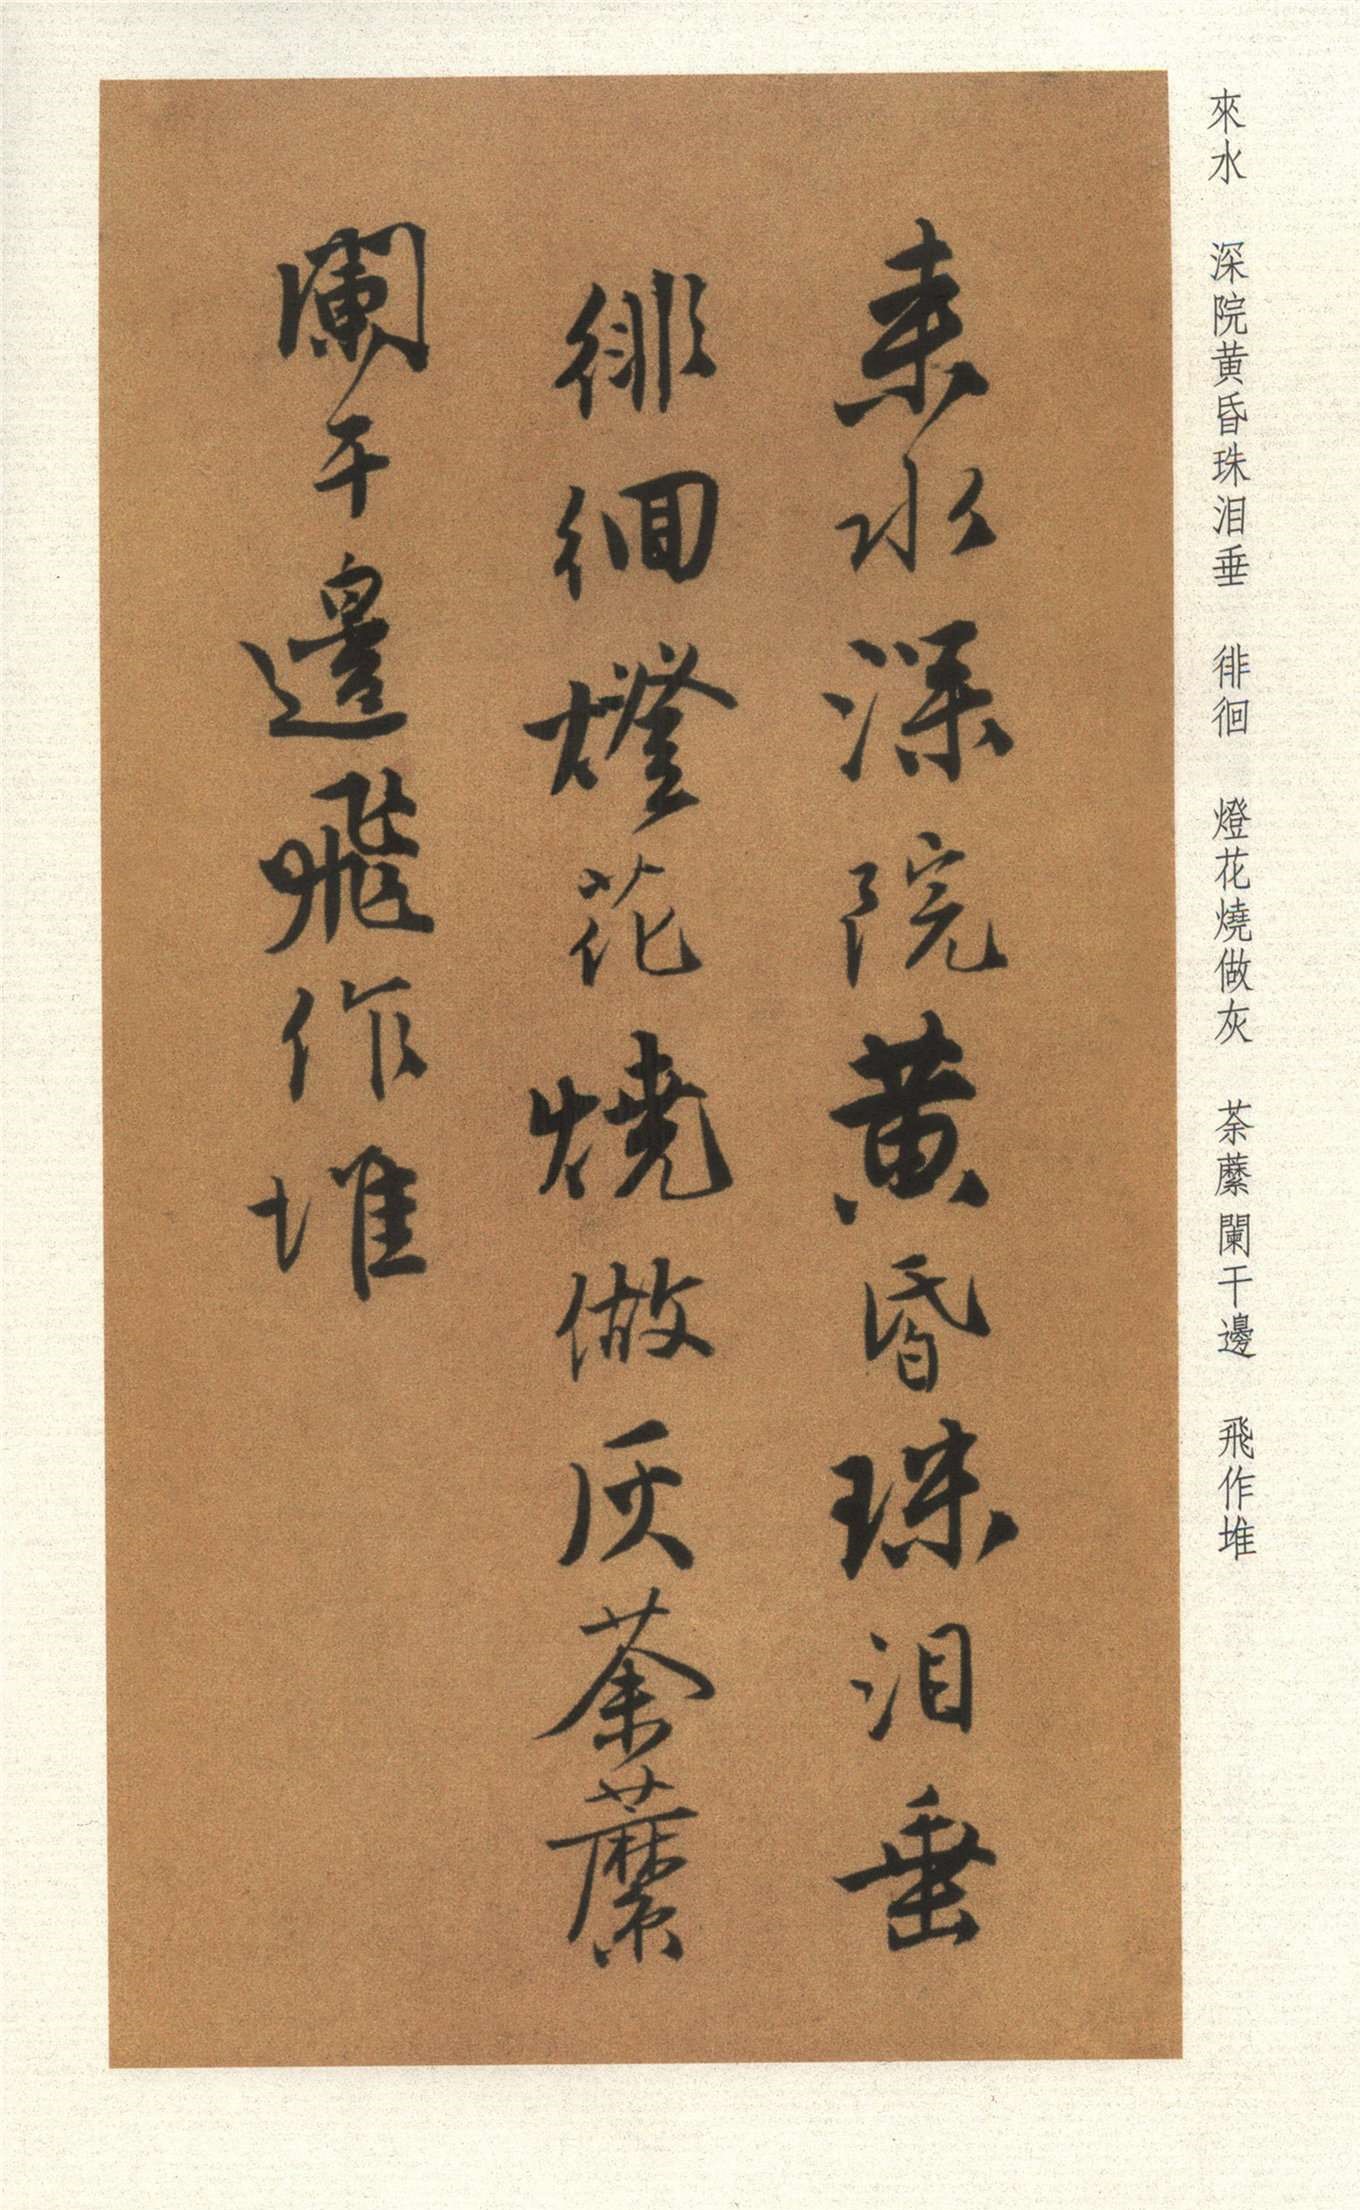 來水 深院黄昏珠泪垂 徘徊 燈花燒做灰 荼蘼闌干邊 飛作堆
来水深院黄昏珠泪垂
徘徊燈花燒做灰荼蘼
闌干邊飛作堆